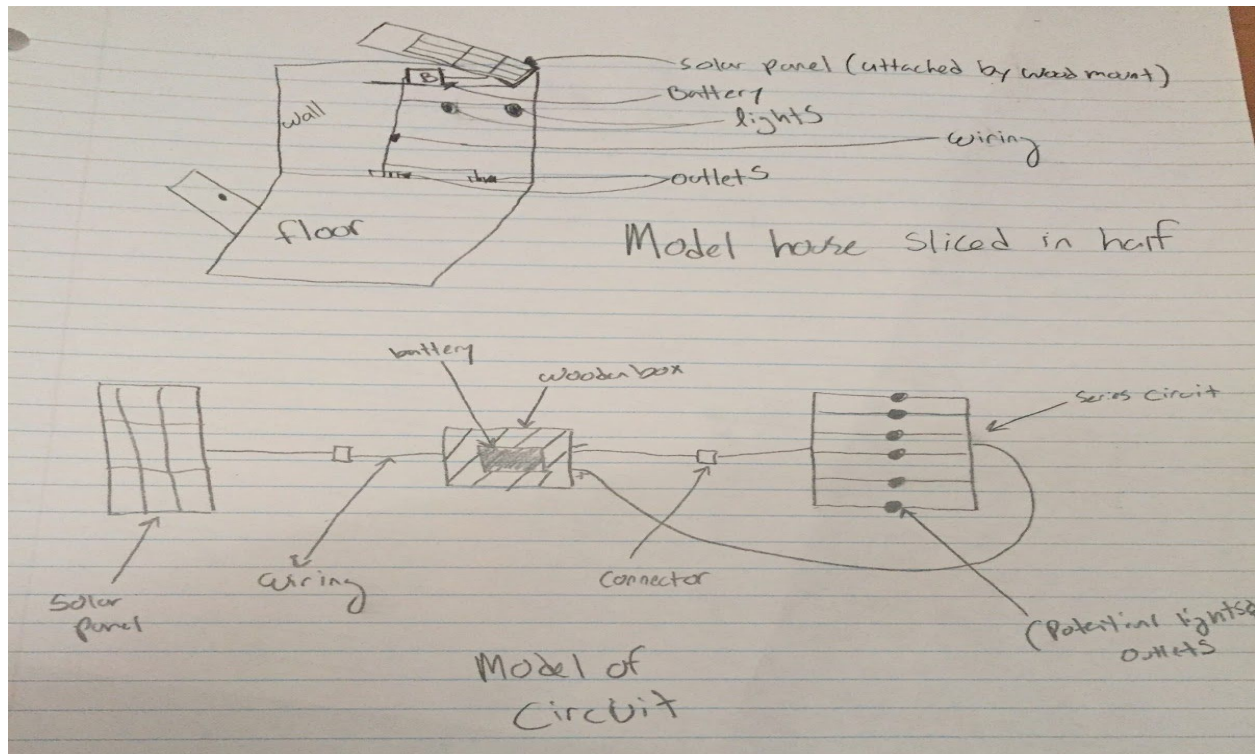 solar panel (attached by wood mount)
B
Battery
wall
lights
wiring
outlets
floor
Model house sliced in half
battery
wooden box
series circuit
+
wiring
Connector
solar
panel
(Potential lights
outlets
Model of
Circuit